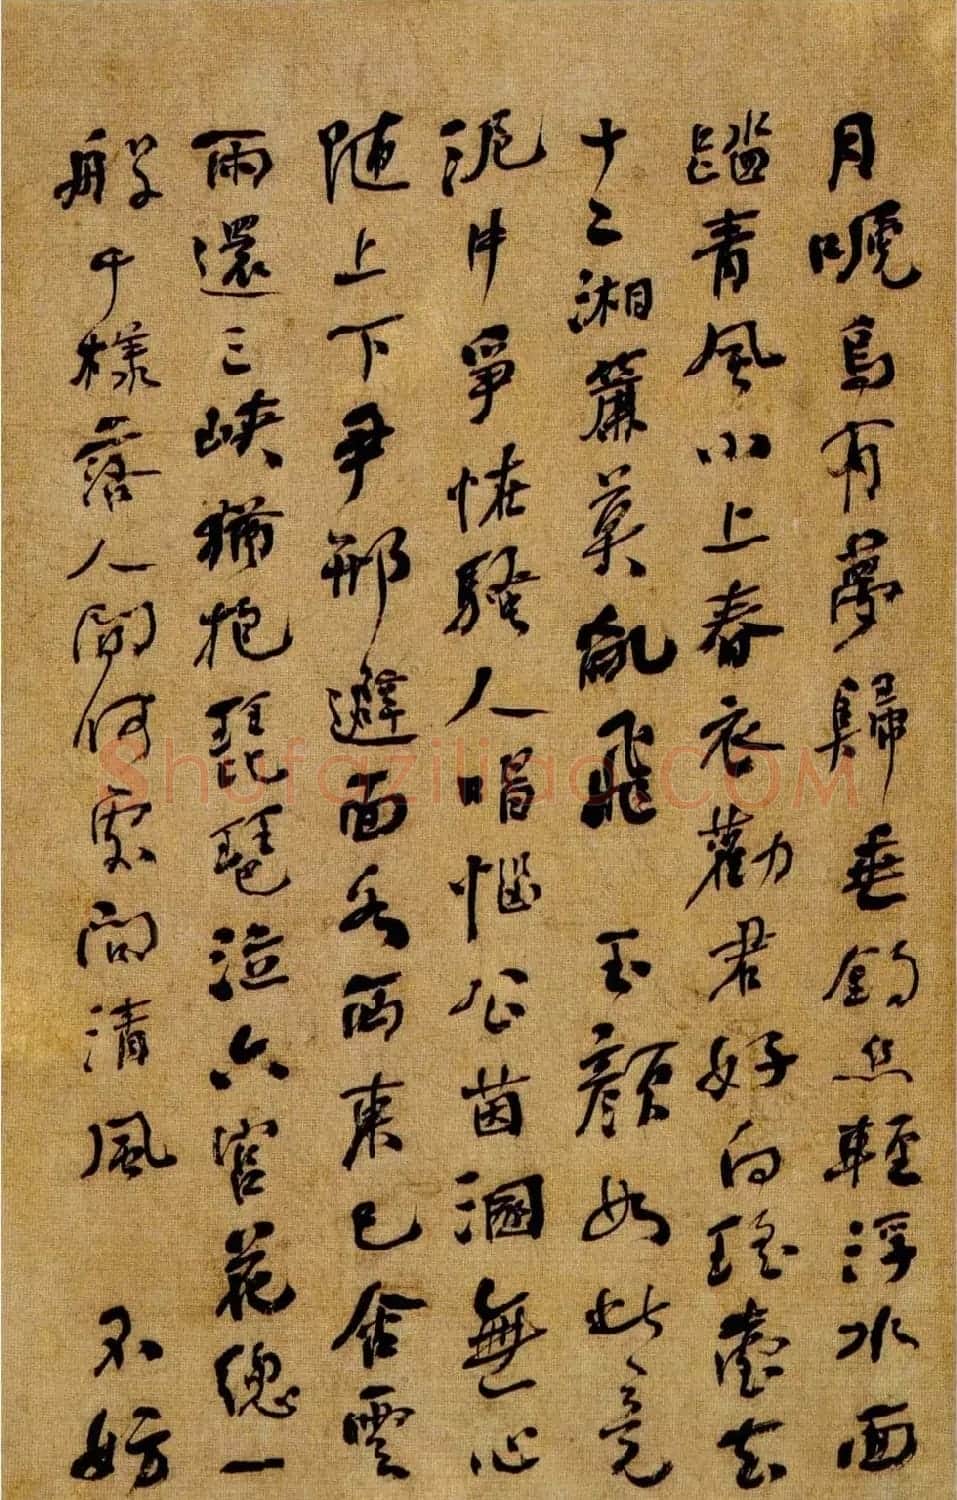 月嗁烏有夢歸垂釣絲輕浮水面
蹋青風小上春衣勸君好向瑤臺去
十二湘簾莫亂飛 玉顏如此竟
泥中爭怪騷人唱惱公茵溷無心
随上下尹邢避面各西東已舍雲
雨還三峽猶抱琵琶泣六宮花總一
般千樣落人間何處問清風 不妨
Shufaziliao.COM